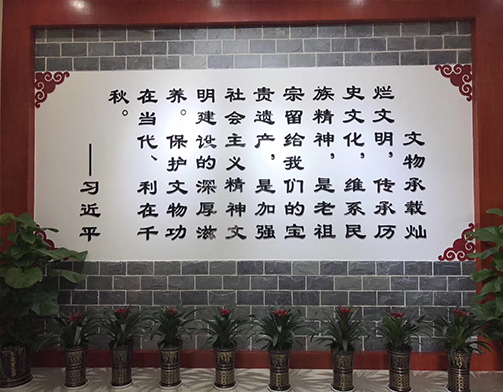 文物承载灿
烂文明，传承历
史文化，维系民
族精神，是老祖
宗留给我们的宝
贵遗产，是加强
社会主义精神文
明建设的深厚滋
养。保护文物功
在当代、利在千
秋。
——习近平